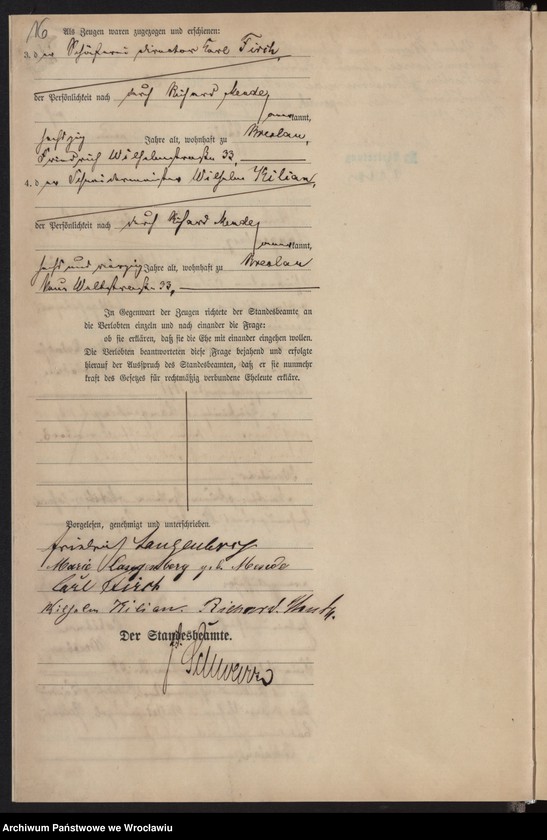 16
Als Zeugen waren zugezogen und erschienen:
3. der Schäferei director Carl Hirsch,
der Persönlichkeit nach durch Richard
kannt,
sechszig Jahre alt, wohnhaft zu Breslau,
Friedrich Wilhelmstraße 33,
4. der Schneidermeister Wilhelm Kilian,
der Persönlichkeit nach durch Richard
kannt,
sechs und vierzig Jahre alt, wohnhaft zu Breslau
33,
In Gegenwart der Zeugen richtete der Standesbeamte an
die Verlobten einzeln und nach einander die Frage:
ob sie erklären, daß sie die Ehe mit einander eingehen wollen.
Die Verlobten beantworteten diese Frage bejahend und erfolgte
hierauf der Ausspruch des Standesbeamten, daß er sie nunmehr
kraft des Gesetzes für rechtmäßig verbundene Eheleute erkläre.
Vorgelesen, genehmigt und unterschrieben
Friedrich Langenberg
Marie Langenberg geb.
Carl Hirsch
Wilhelm Kilian. Richard
Der Standesbeamte.
Archiwum Państwowe we Wrocławiu